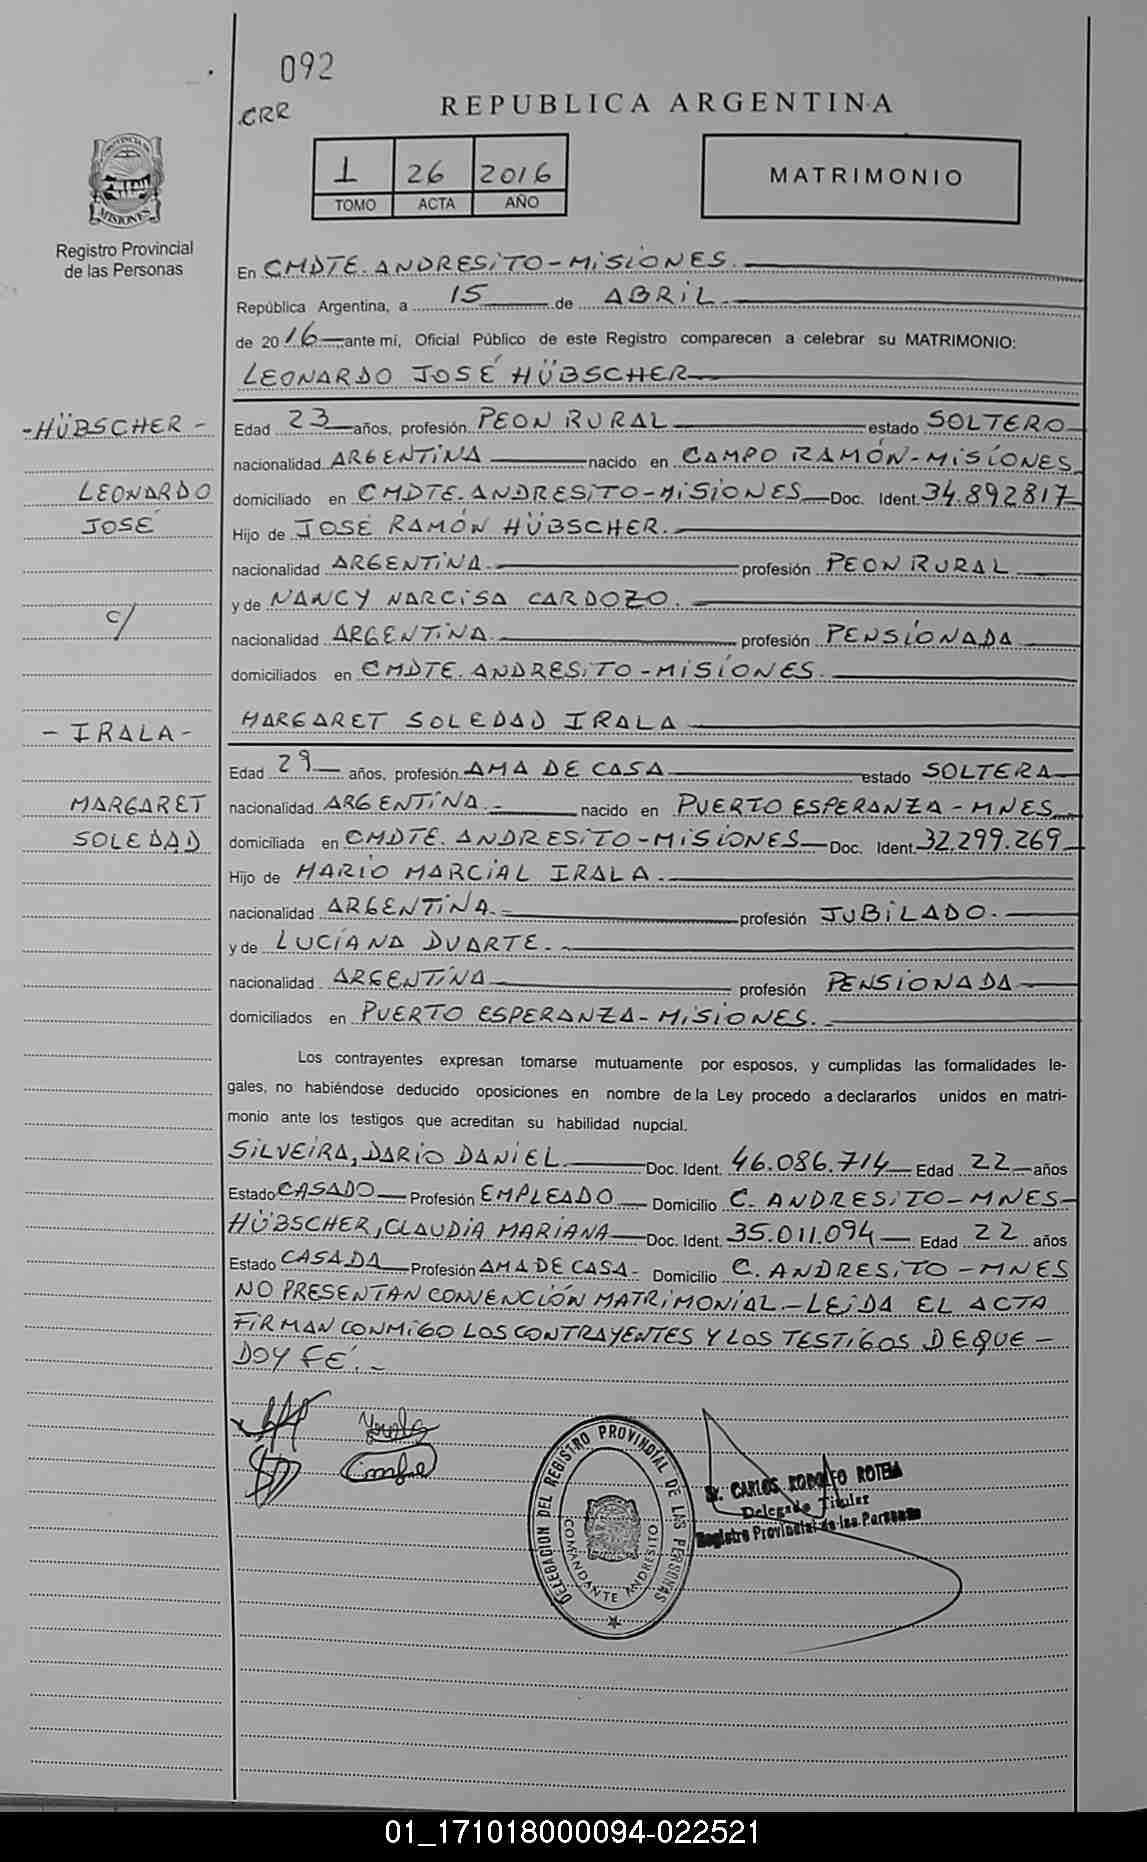 092
CRR
REPUBLICA ARGENTINA
PROVINCIA DE
MISIONES
Registro Provincial
de las Personas
1 26 2016
TOMO ACTA AÑO
MATRIMONIO
En CMDTE. ANDRESITO - MISIONES.
República Argentina, a 15 de ABRIL.
de 2016 ante mi, Oficial Público de este Registro comparecen a celebrar su MATRIMONIO:
LEONARDO JOSÉ HÜBSCHER
- HÜBSCHER -
LEONARDO
JOSÉ
c/
- IRALA -
MARGARET
SOLEDAD
Edad 23 años, profesión PEON RURAL estado SOLTERO
nacionalidad ARGENTINA nacido en CAMPO RAMÓN - MISIONES
domiciliado en CMDTE. ANDRESITO - MISIONES Doc. Ident. 34.892817
Hijo de JOSÉ RAMÓN HÜBSCHER.
nacionalidad ARGENTINA. profesión PEON RURAL
y de NANCY NARCISA CARDOZO.
nacionalidad ARGENTINA. profesión PENSIONADA
domiciliados en CMDTE. ANDRESITO - MISIONES.
MARGARET SOLEDAD IRALA
Edad 29 años, profesión AMA DE CASA estado SOLTERA
nacionalidad ARGENTINA. nacido en PUERTO ESPERANZA - MNES
domiciliada en CMDTE. ANDRESITO - MISIONES Doc. Ident. 32.299.269
Hijo de MARIO MARCIAL IRALA.
nacionalidad ARGENTINA. profesión JUBILADO.
y de LUCIANA DUARTE.
nacionalidad ARGENTINA profesión PENSIONADA
domiciliados en PUERTO ESPERANZA - MISIONES.
Los contrayentes expresan tomarse mutuamente por esposos, y cumplidas las formalidades le-
gales, no habiéndose deducido oposiciones en nombre de la Ley procedo a declararlos unidos en matri-
monio ante los testigos que acreditan su habilidad nupcial.
SILVEIRA, DARIO DANIEL Doc. Ident. 46.086.714 Edad 22 años
Estado CASADO Profesión EMPLEADO Domicilio C. ANDRESITO - MNES
HÜBSCHER, CLAUDIA MARIANA Doc. Ident. 35.011.094 Edad 22 años
Estado CASADA Profesión AMA DE CASA Domicilio C. ANDRESITO - MNES
NO PRESENTAN CONVENCIÓN MATRIMONIAL. - LEIDA EL ACTA
FIRMAN CONMIGO LOS CONTRAYENTES Y LOS TESTIGOS DE QUE -
DOY FÉ. -
DELEGACION DEL REGISTRO PROVINCIAL DE LAS PERSONAS
COMANDANTE ANDRESITO
Sr. CARLOS RODOLFO ROTELA
Delegado Titular
Registro Provincial de las Personas
01_171018000094-022521